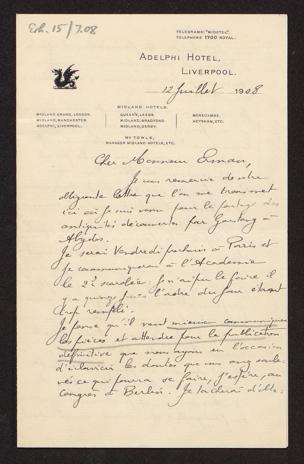 Erh. 15/7.08
TELEGRAMS: "MIDOTEL".
TELEPHONE 1700 ROYAL.
ADELPHI HOTEL,
LIVERPOOL.
12 Juillet 1908
MIDLAND HOTELS.
MIDLAND GRAND, LONDON.
MIDLAND, MANCHESTER.
ADELPHI, LIVERPOOL.
QUEEN'S, LEEDS.
MIDLAND, BRADFORD.
MIDLAND, DERBY.
MORECAMBE.
HEYSHAM, ETC.
WM TOWLE,
MANAGER MIDLAND HOTELS, ETC.
Cher Monsieur Erman,
Je vous remercie de votre
obligeante lettre que l'on me transmet
ici où je suis venu pour le partage des
antiquités découvertes par Garstang à
Abydos.
Je serai Vendredi prochain à Paris et
je communiquerai à l'Académie
le 2e scarabée: je n'ai pu le faire il
y a quinze jours, l'ordre du jour étant
trop rempli.
Je pense qu'il vaut mieux communiquer
les pièces et attendre pour la publication
définitive que nous ayons eu l'occasion
d'éclaircir les doutes que vous avez soule-
vés ce qui pourra se faire, j'espère, au
congrès à Berlin. Je tâcherai d'ob-